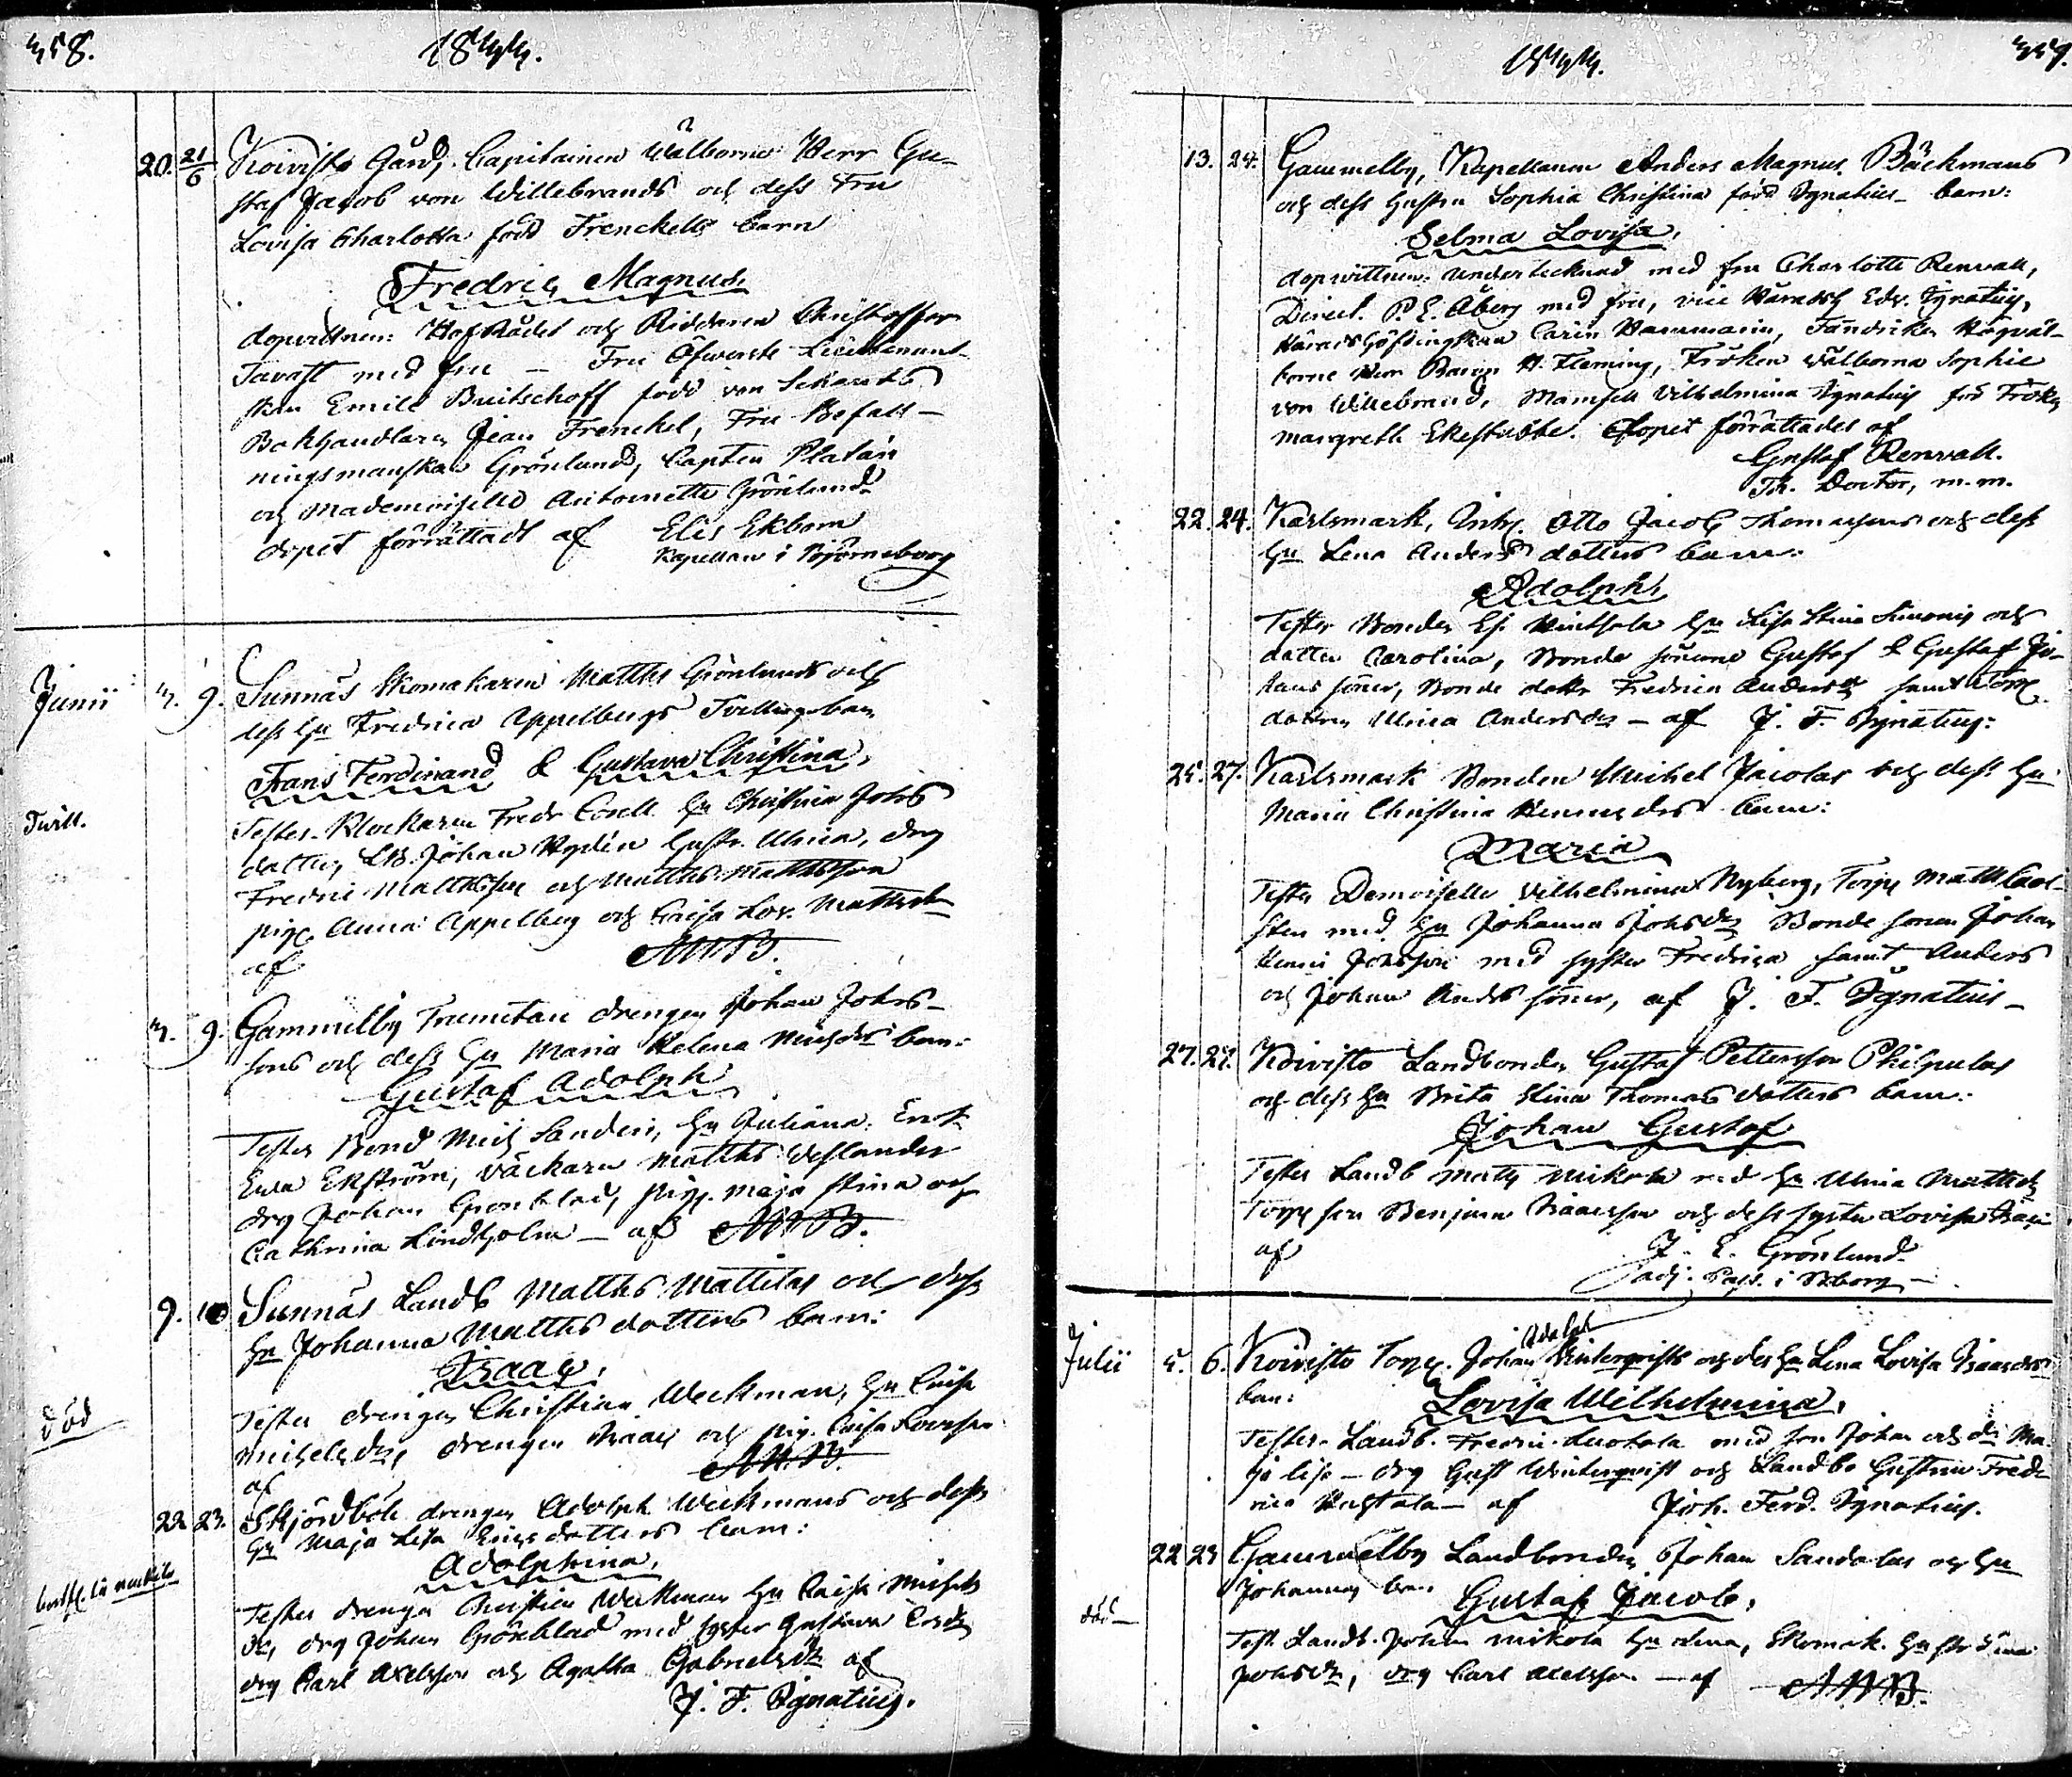 358.
1844.
20. 21/6 Koivisto Gård, Capitainen Wälborne Herr Gu-
staf Jacob von Willebrands och dess Fru
Lovisa Charlotta född Frenckells barn
Fredric Magnus.
dopvittnen: HofRådet och Riddaren Christoffer
Tavast med fru — Fru Öfwerste Lieutenant-
skan Emile Buitschoff född von
Bokhandlaren Jean Frenckel, Fru Befall-
ningsmanskan Grönlund, Capten Platán
och Mademoiselle Antoinette Grönlund
dopet förrättadt af Elis Ekbom
Kapellan i Björneborg
Junii
3. 9. Sunnäs Skomakaren Matths Grönlunds och
dess Hu Fredrica Appelbergs Tvillingbarn
Frans Ferdinand & Gustava Christina,
Twill.
Testes Klockaren Fredr Hu Christina Johs
dotter, Johan Hydén Hustr. Ulrica, drg
Fredric Mattsson och Matths Mattsson
pig. Anna Appelberg och Caisa Lov. Mattsdr
af AMB.
3. 9. Gammelby drengen Johan Johs-
sons och dess Hu Maria Helena barn:
Gustaf Adolph
Testes Bond Mich Sanderi, Hu Juliana,
Ewa Ekström, Matths Veslander
drg Johan Grönblad, pig. Maja Stina och
Cathrina Lindholm — af AMB.
9. 10 Sunnäs Landb Matths Mattilas och dess
Hu Johanna Matths dotters barn:
Isaac,
död
Testes drengen Christian Weckman, Hu Caisa
Michelsdr, drengen Isaac och pig. Caisa Lovisa
af AMB.
22 23. Skjördböle drengen Adolph Weckmans och dess
Hu Maja Lisa dotters barn:
Adolphina,
Testes drengen Christian Weckman Hu Caisa Michels
dr, drg Johan Grönblad med syster Gustava
drg Carl Axelsson och Agatha Gabrielsdr af
J. F. Ignatius.
1844.
359.
13. 24. Gammelby, Kapellanen Anders Magnus Bäckmans
och dess hustru Sophia Christina född Ignatius barn:
Selma Lovisa,
dopvittnen: undertecknad med fru Charlotte Renvall,
Direct. P. E. Åberg med fru, vice Häradsh Edv. Ignatius,
Häradshöfdingskan Carin Hammarin, Fändriken Högväl-
borne Herr Baron H. Fleming, Fröken Välborna Sophie
von Willebrand, Mamsell Vilhelmina Ignatius för Fröken
Margreth Ekestubbe. Dopet förrättades af
Gustaf Renvall.
Th. Doctor, m.m.
22. 24. Karlsmark, Otto Jacob Thomassons och dess
Hu Lena Anders dotters barn:
Adolph,
Testes Bonden Hu Lisa Stina Simonis och
dotter Carolina, Bonde sönerne Gustaf & Gustaf Jo-
hans söner, Bonde dottr Fredrica Andersdr samt Torp
dottren Ulrica Andersdr — af J. F. Ignatius:
25. 27. Karlsmark Bonden Michel Jacolas och dess Hu
Maria Christina Henricsdrs barn:
Maria
Testes Demoiselle Vilhelmina Nyberg, Torp. Matths Carl-
sten med Hu Johanna Johsdr Bonde sonen Johan
Henric Johsson med syster Fredrica samt Anders
och Johan Anders söner, af J. F. Ignatius —
27. 27. Koivisto Landbonden Gustaf Pettersson Philpulas
och dess Hu Brita Stina Thomas dotters barn:
Johan Gustaf
Testes Landb Matts Mikola med Hu Ulrica Mattsdr
Torp son Benjamin Isaacsson och dess syster Lovisa
af J. E. Grönlund
adj. Past. i Bborg —
Julii
5. 6. Koivisto Torp. Johan Adolph Winterqvists och des Hu Lena Lovisa Isaacsdrs
barn: Lovisa Wilhelmina,
Testes Landb. Fredric Luokala med son Johan och dr Ma-
ja Lisa — drg Gust Winterqvist och Landbo Hustrun Fred-
rica — af Joh. Ferd. Ignatius.
22 23 Gammelby Landbonden Johan Sandalas och Hu
Johannas barn Gustaf Jacob,
död —
Test. Landb. Johan Mikola Hu, Skomak. Hustr Stina
Johsdr, drg Carl Axelsson — af AMB.